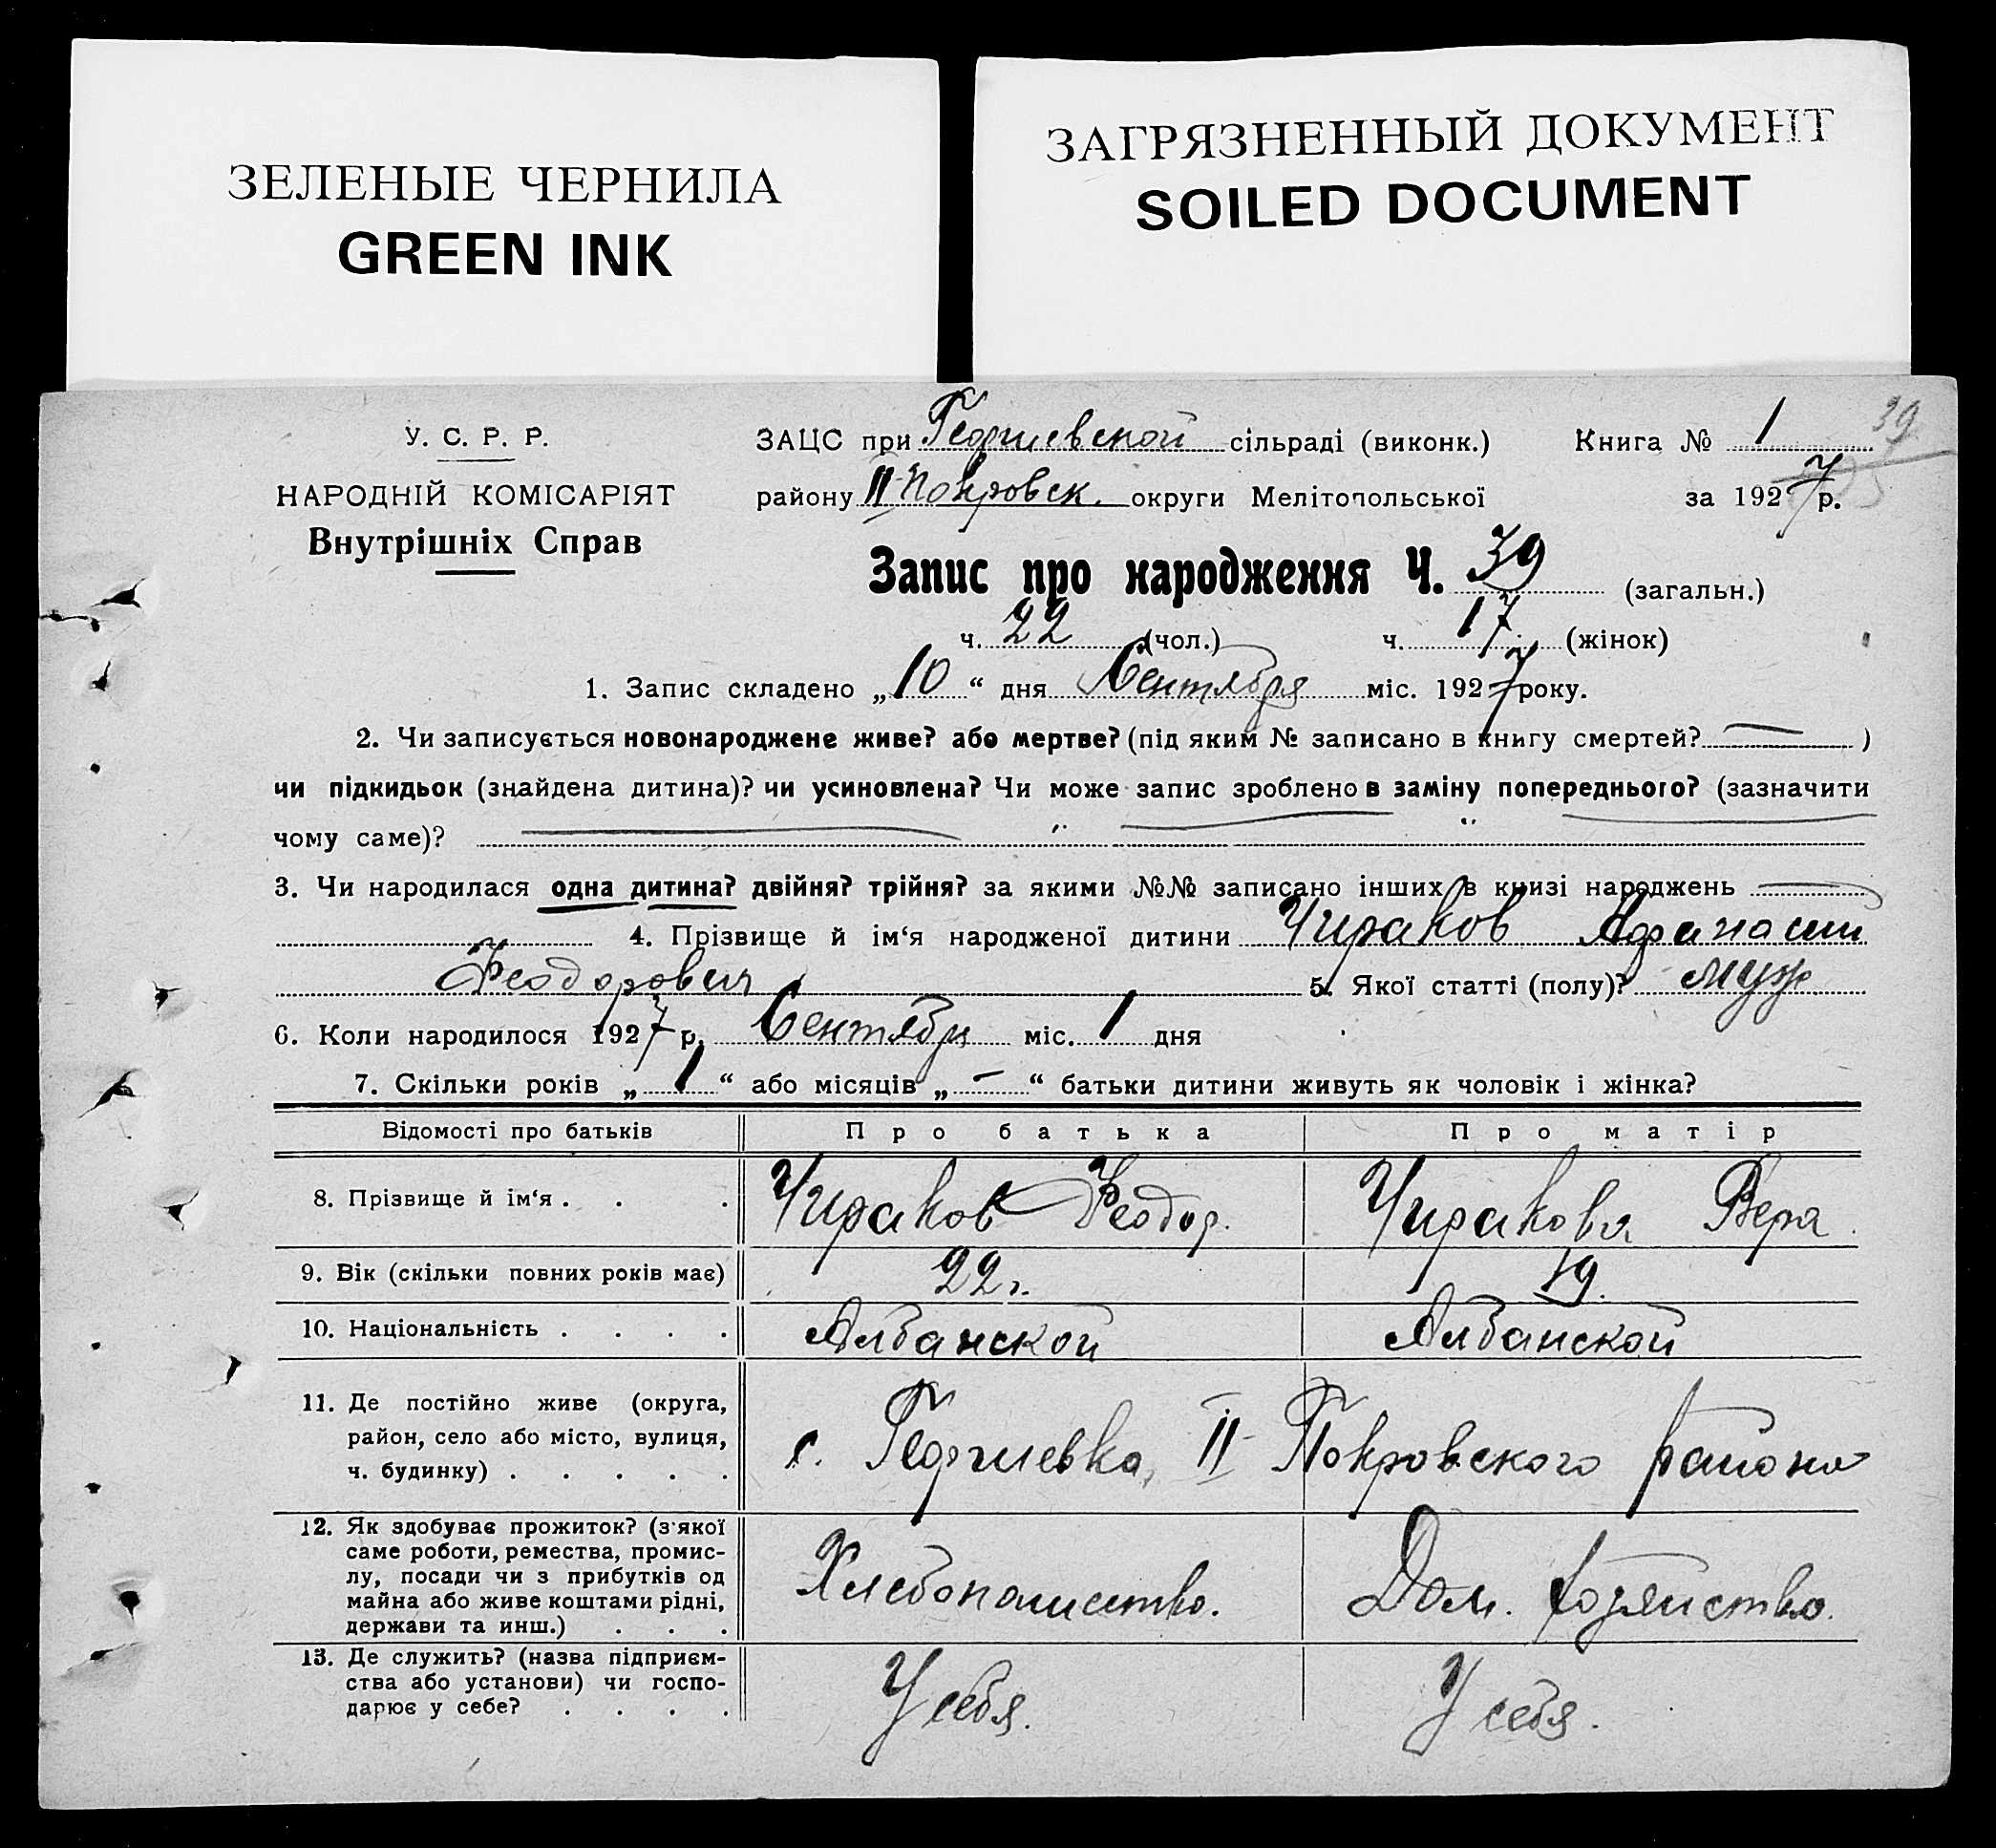 ЗЕЛЕНЫЕ ЧЕРНИЛА
GREEN INK
ЗАГРЯЗНЕННЫЙ ДОКУМЕНТ
SOILED DOCUMENT
39
У. С. Р. Р.
НАРОДНІЙ КОМІСАРІЯТ
Внутрішніх Справ
ЗАЦС при Георгиевской сільраді (виконк.) Книга № 1
району II Покровск. округи Мелітопольської за 1927 р.
Запис про народження Ч. 39 (загальн.)
ч. 22 (чол.) ч. 17 (жінок)
1. Запис складено „10“ дня Сентября міс. 1927 року.
2. Чи записується новонароджене живе? або мертве? (під яким № записано в книгу смертей? — )
чи підкидьок (знайдена дитина)? чи усиновлена? Чи може запис зроблено в заміну попереднього? (зазначити
чому саме)? — „ — „ —
3. Чи народилася одна дитина? двійня? трійня? за якими №№ записано інших в книзі народжень —
4. Прізвище й ім‘я народженої дитини Чираков Афанасий
Феодорович 5. Якої статті (полу)? муж.
6. Коли народилося 1927 р. Сентября міс. 1 дня
7. Скільки років „1“ або місяців „—“ батьки дитини живуть як чоловік і жінка?
Відомості про батьків Про батька Про матір
8. Прізвище й ім‘я . . . Чираков Феодор. Чиракова Вера.
9. Вік (скільки повних років має) 22 г. 19.
10. Національність . . . . Албанской Албанской
11. Де постійно живе (округа,
район, село або місто, вулиця,
ч. будинку) . . . . .
с. Георгиевка, II Покровского района
12. Як здобуває прожиток? (з'якої
саме роботи, ремества, промис-
лу, посади чи з прибутків од
майна або живе коштами рідні,
держави та инш.) . . .
Хлебопашество. Дом. хозяйство.
13. Де служить? (назва підприєм-
ства або установи) чи госпо-
дарює у себе? . . . .
У себя. У себя.